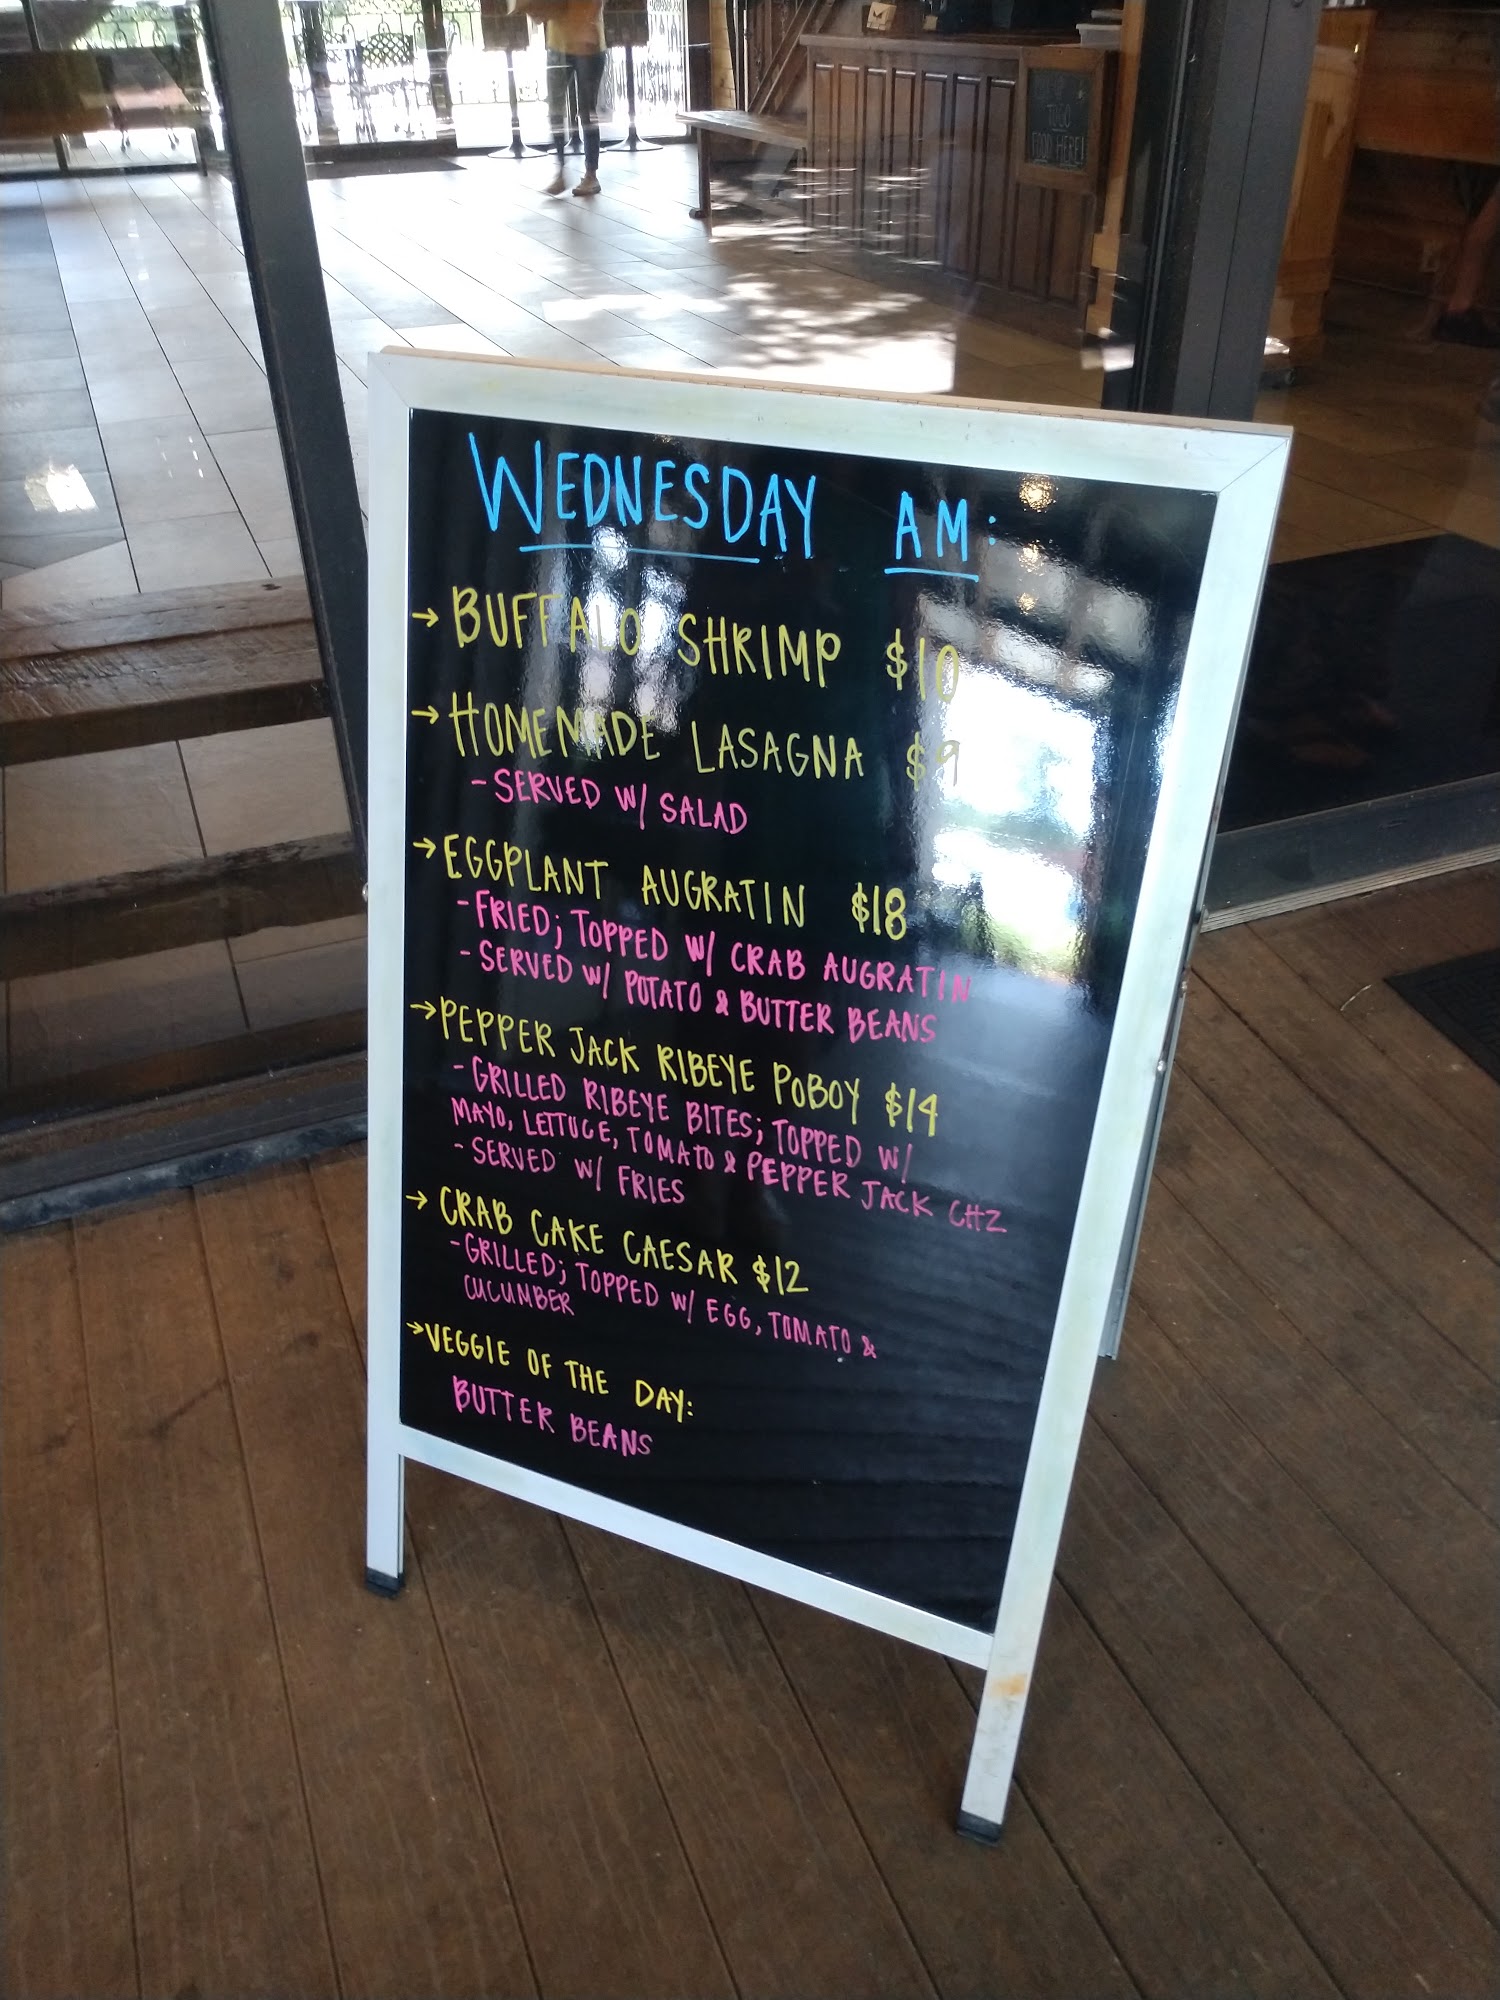 TOGO
FOOD HERE!
WEDNESDAY AM:
→ BUFFALO SHRIMP $10
→ HOMEMADE LASAGNA $9
- SERVED W/ SALAD
→ EGGPLANT AUGRATIN $18
- FRIED; TOPPED W/ CRAB AUGRATIN
- SERVED W/ POTATO & BUTTER BEANS
→ PEPPER JACK RIBEYE POBOY $14
- GRILLED RIBEYE BITES; TOPPED W/
MAYO, LETTUCE, TOMATO & PEPPER JACK CHZ
- SERVED W/ FRIES
→ CRAB CAKE CAESAR $12
- GRILLED; TOPPED W/ EGG, TOMATO &
CUCUMBER
→ VEGGIE OF THE DAY:
BUTTER BEANS